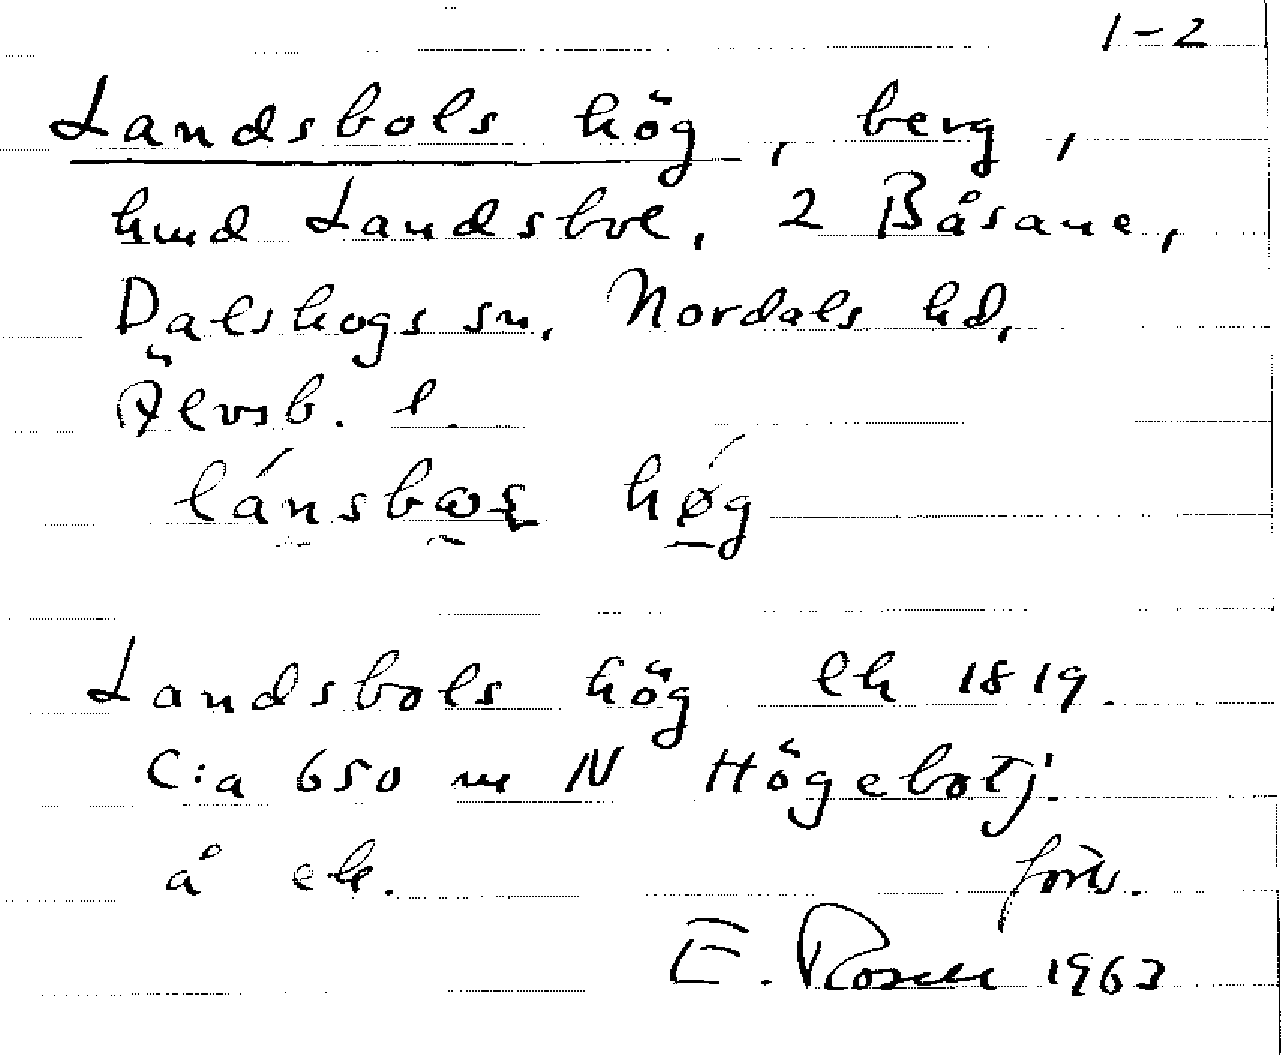 1-2
Landsbols hög, berg,
hmd Landsbol, 2 Båsane,
Dalskogs sn, Nordals hd,
Älvsb. l.
hög
Landsbols hög ek 1819.
C:a 650 m N Högebotj.
å ek. forts.
E. Rosell 1963